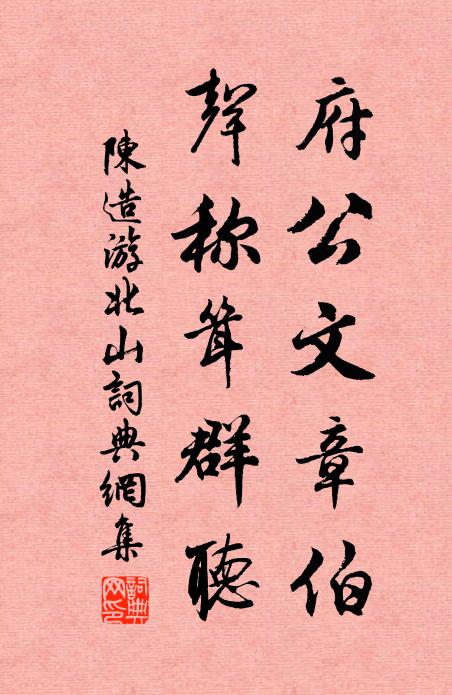 府公文章伯
聲称耸群聽
陳造游北山詞典網集
詞典网印